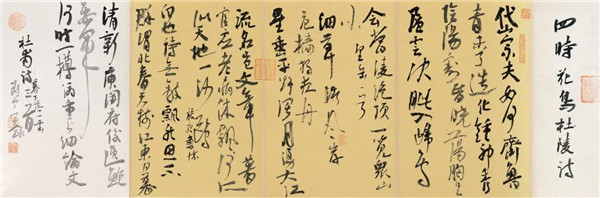 四時花鳥杜陵詩
岱宗夫如何齊魯
青未了造化鍾神秀
陰陽割昏曉蕩胸生
層雲決眦入歸鳥
會當凌絕頂一覽衆山
小
細草微風岸
危檣獨夜舟
星垂平野闊月湧大江
流名豈文章著
官應老病休飄飄何所
似天地一沙鷗
旅夜書懷
白也詩無敵飄然思不
群渭北春天樹江東日暮
清新庾開府俊逸鮑
參軍
何時一樽酒重與細論文
杜甫詩